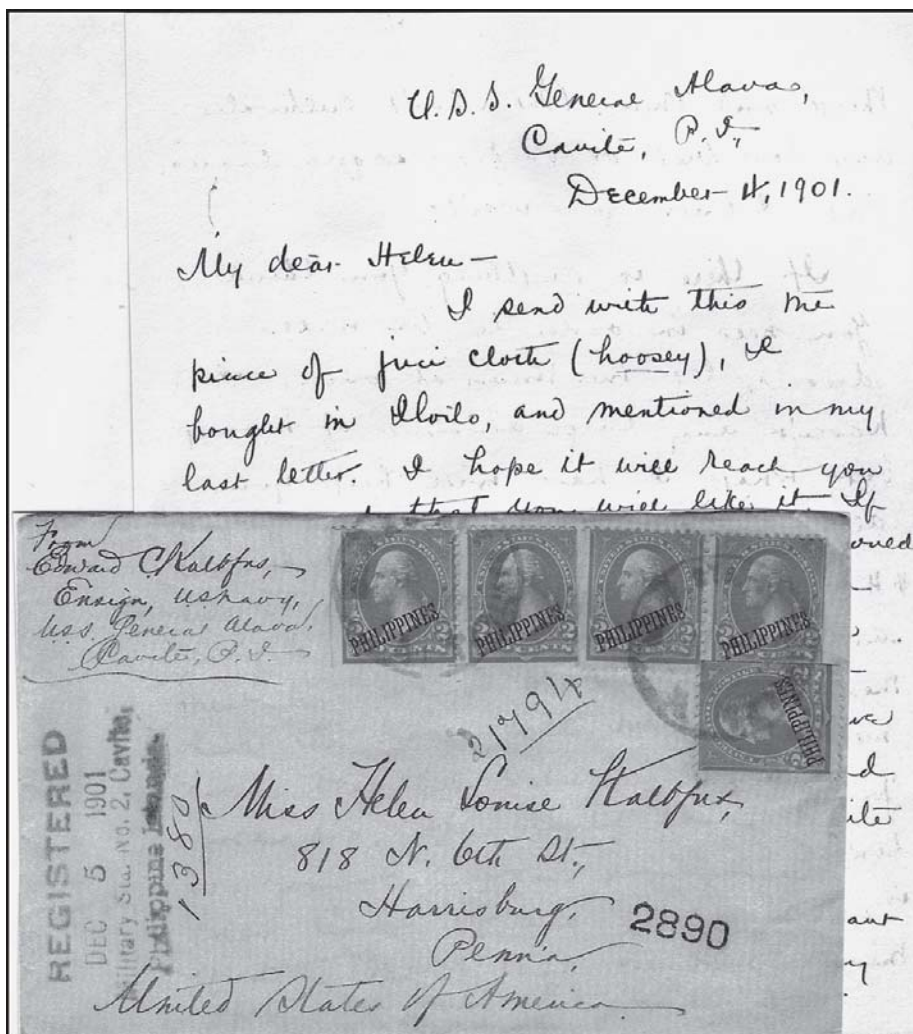 U.S.S. General Alava,
Cavite, P.I.,
December 4, 1901.
My dear Helen—
I send with this the
piece of juci cloth (hoosey), I
bought in Iloilo, and mentioned in my
last letter. I hope it will reach you
that you will like it. If
From
Edward C. Kalbfus,
Ensign, U.S. Navy,
U.S.S. General Alava,
Cavite, P.I.
PHILIPPINES
PHILIPPINES
PHILIPPINES
PHILIPPINES
PHILIPPINES
21794
1380
REGISTERED
DEC 5 1901
Military Sta. No. 2, Cavite,
Philippine Islands.
Miss Helen Louise Kalbfus,
818 N. 6th St.,
Harrisburg,
2890
Penn'a,
United States of America